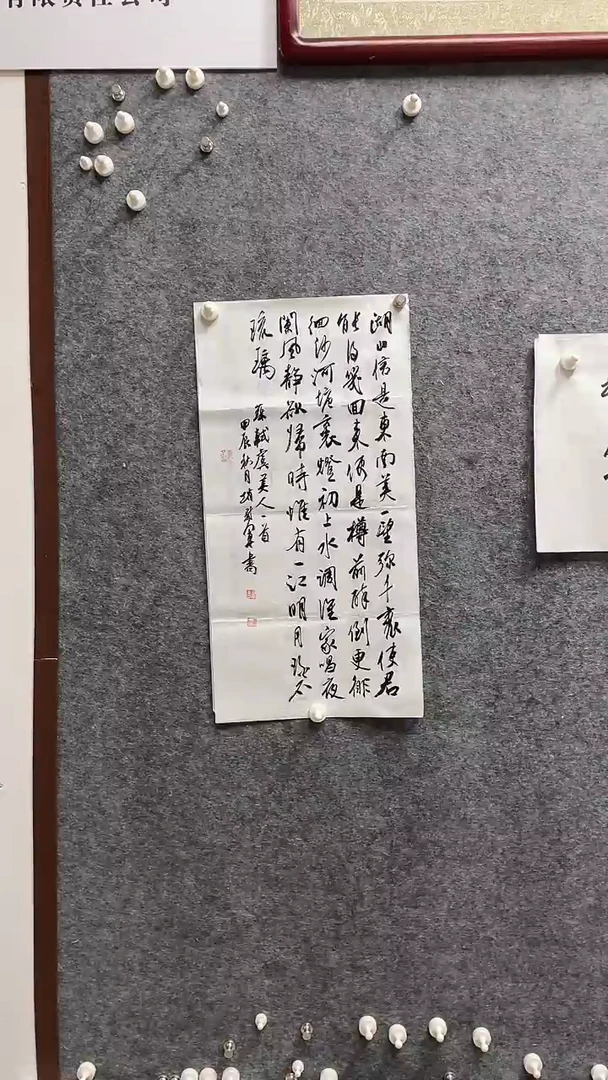 有限责任公司
湖山信是東南美一望弥千裏使君
能得幾回來便是樽前醉倒更徘
徊沙河塘裏燈初上水調誰家唱夜
闌風静欲歸時惟有一江明月碧
琉璃
蘇軾虞美人一首
甲辰秋月書